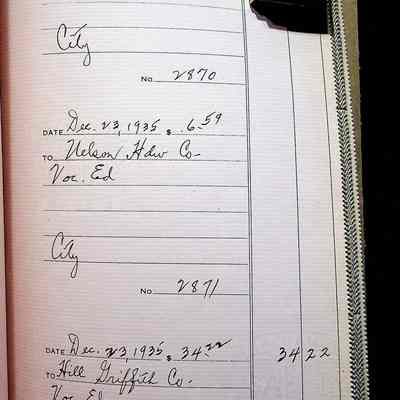 City
No. 2870
DATE Dec. 23, 1935 $ 6.59
TO Nelson Hdw Co-
Voc. Ed
City
No. 2871
DATE Dec. 23, 1935 $ 34.22 34 22
TO Hill Griffith Co-
Voc. Ed